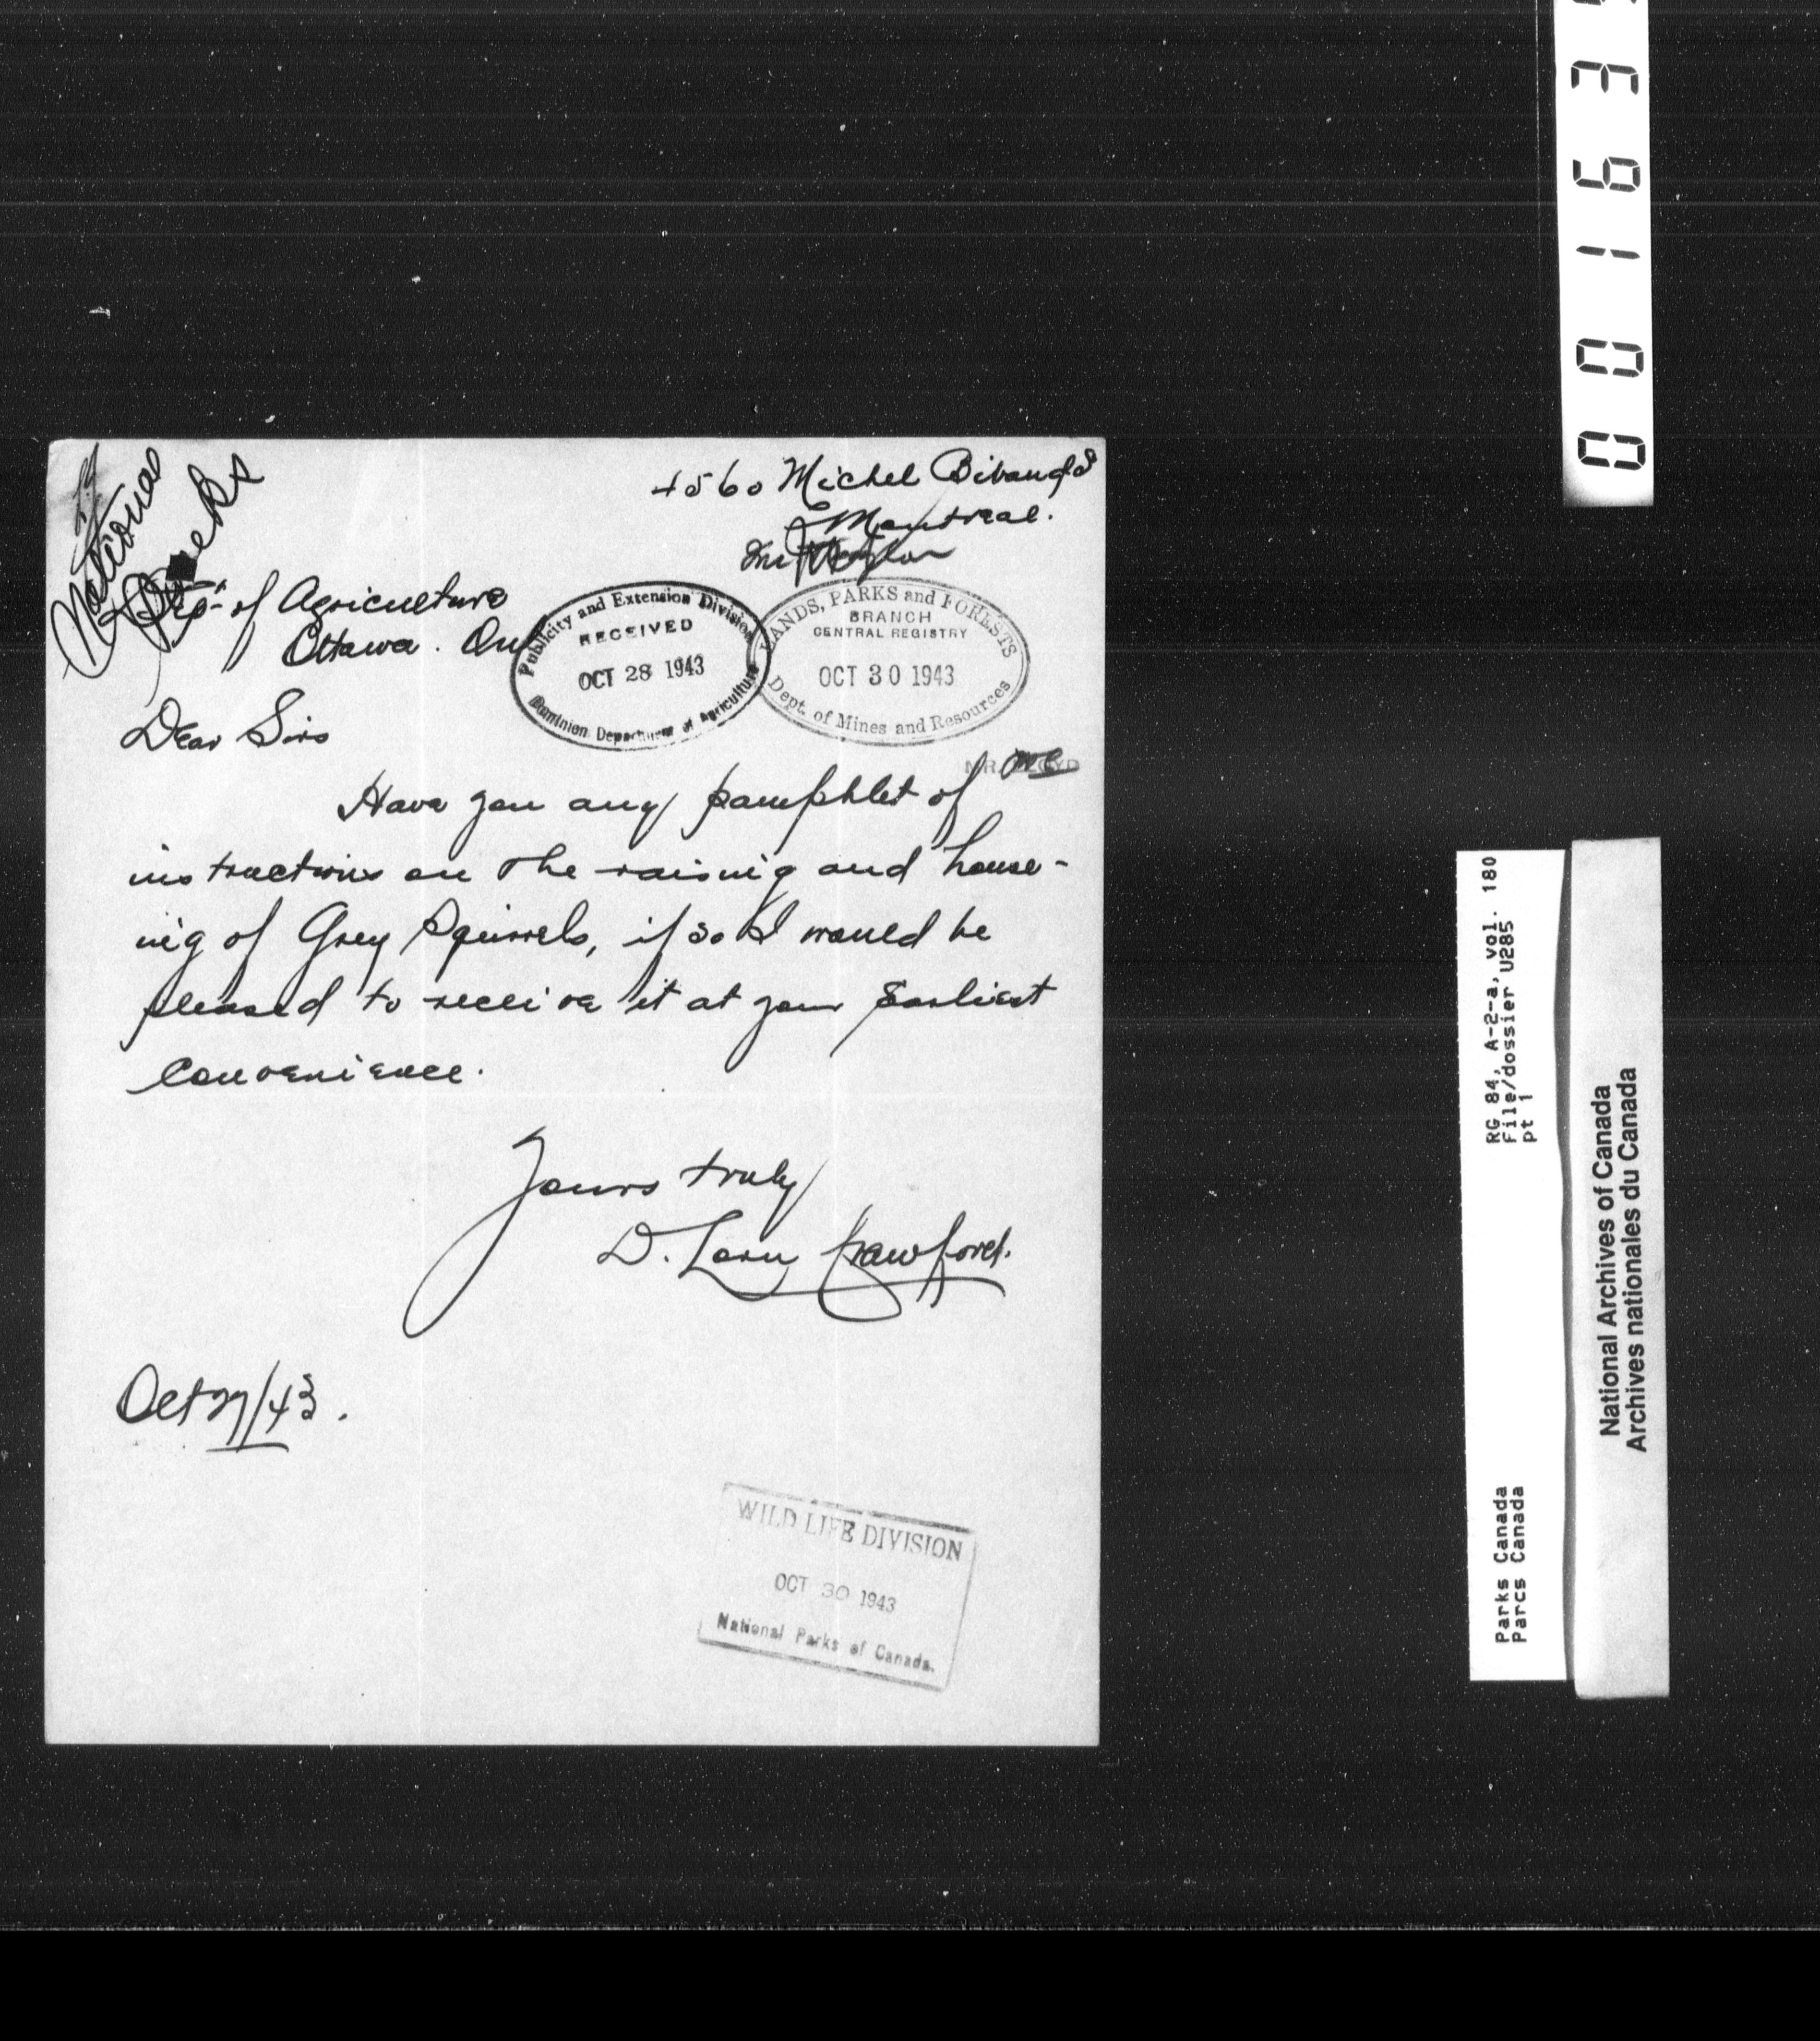 4560 Michel Bibaud St
Montreal.
National
Parks
Dept of Agriculture
Ottawa. Ont
Publicity and Extension Division
RECEIVED
OCT 28 1943
Dominion Department of Agriculture
LANDS, PARKS and FORESTS
BRANCH
CENTRAL REGISTRY
OCT 30 1943
Dept. of Mines and Resources
Dear Sirs
MR. LLOYD
Have you any pamphlet of
instructions on the raising and house-
ing of Grey Squirrels, if so I would be
pleased to receive it at your Earliest
Convenience.
Yours truly
D. Lorn Crawford.
Oct 27/43.
WILD LIFE DIVISION
OCT 30 1943
National Parks of Canada.
00163
RG 84, A-2-a, vol. 180
File/dossier U285
pt 1
Parks Canada
Parcs Canada
National Archives of Canada
Archives nationales du Canada